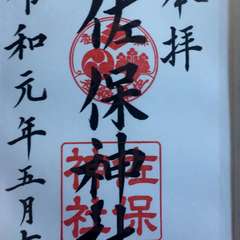 奉拝
佐保神社
佐保
神社
令和元年五月